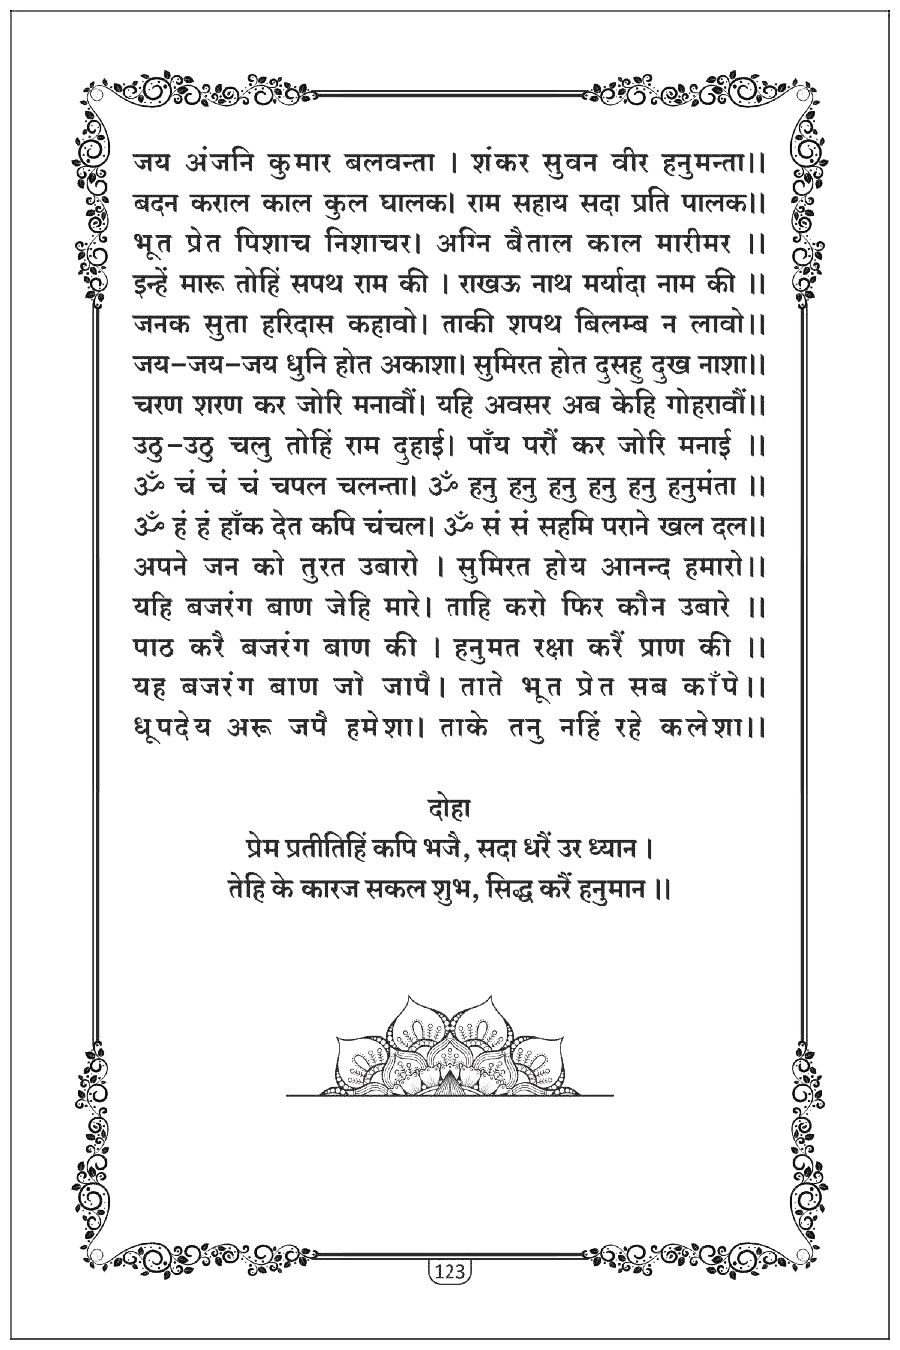 जय अंजनि कुमार बलवन्ता । शंकर सुवन वीर हनुमन्ता।।
बदन कराल काल कुल घालक। राम सहाय सदा प्रति पालक।।
भूत प्रेत पिशाच निशाचर। अग्नि बैताल काल मारीमर ।।
इन्हें मारू तोहिं सपथ राम की । राखऊ नाथ मर्यादा नाम की ।।
जनक सुता हरिदास कहावो। ताकी शपथ बिलम्ब न लावो।।
जय–जय–जय धुनि होत अकाशा। सुमिरत होत दुसहु दुख नाशा।।
चरण शरण कर जोरि मनावौं। यहि अवसर अब केहि गोहरावौं।।
उठु–उठु चलु तोहिं राम दुहाई। पाँय परौं कर जोरि मनाई ।।
ॐ चं चं चं चपल चलन्ता। ॐ हनु हनु हनु हनु हनु हनुमंता ।।
ॐ हं हं हाँक देत कपि चंचल। ॐ सं सं सहमि पराने खल दल।।
अपने जन को तुरत उबारो । सुमिरत होय आनन्द हमारो।।
यहि बजरंग बाण जेहि मारे। ताहि करो फिर कौन उबारे ।।
पाठ करै बजरंग बाण की । हनुमत रक्षा करैं प्राण की ।।
यह बजरंग बाण जो जापै। ताते भूत प्रेत सब काँपे।।
धूपदेय अरू जपै हमेशा। ताके तनु नहिं रहे कलेशा।।
दोहा
प्रेम प्रतीतिहिं कपि भजै, सदा धरैं उर ध्यान ।
तेहि के कारज सकल शुभ, सिद्ध करैं हनुमान ।।
123